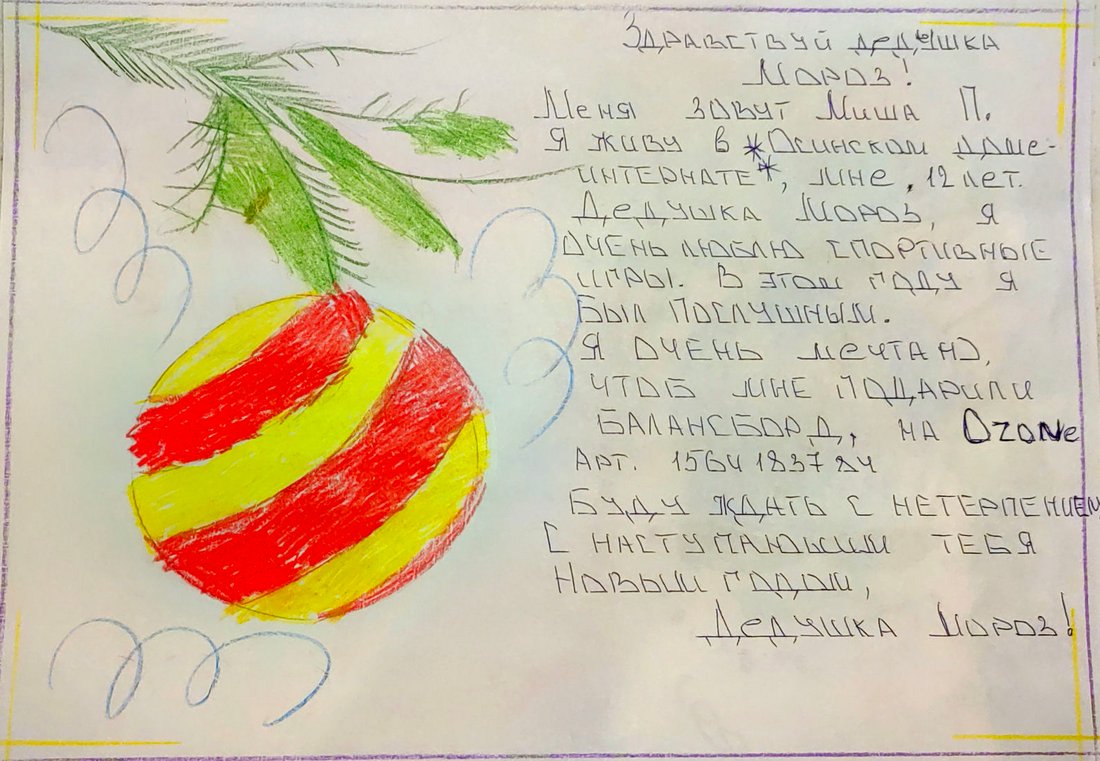 Здравствуй дедушка
Мороз!
Меня зовут Миша П.
Я живу в *Осинском доме-
интернате*, мне 12 лет.
Дедушка Мороз, я
очень люблю спортивные
игры. В этом году я
был послушным.
Я очень мечтаю,
чтоб мне подарили
балансборд, на Ozone
Арт. 1564183784
Буду ждать с нетерпением
С наступающим тебя
Новым годом,
Дедушка Мороз!